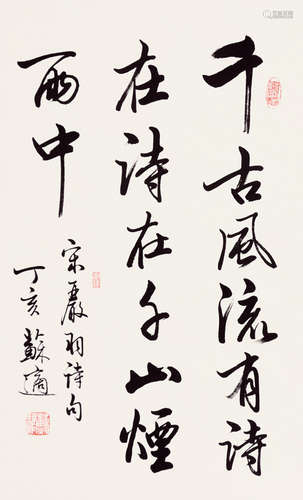 千古風流有詩
在詩在千山煙
雨中
宋嚴羽詩句
丁亥蘇適